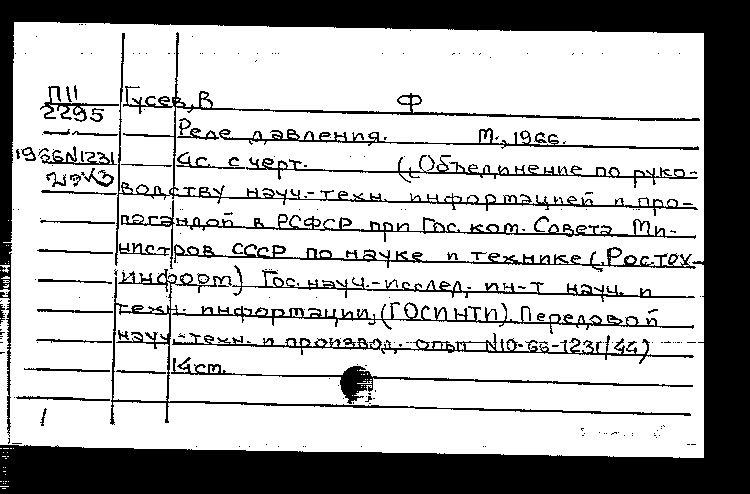 П11 Гусев, В Ф
2295
Реле давления. М., 1966.
1966N1231 4с. с черт. (Объединение по руко-
водству науч.-техн. информацией и про-
пагандой в РСФСР при Гос. ком. Совета Ми-
нистров СССР по науке и технике (Ростех-
информ) Гос. науч.-исслед. ин-т науч. и
техн. информации, (ГОСИНТИ). Передовой
науч.-техн. и производ. опыт N10-66-1231/44)
1